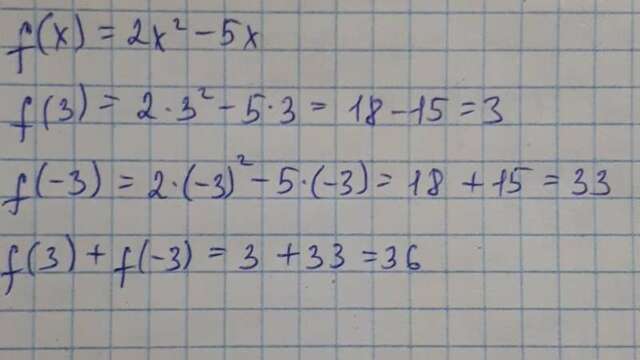 f(x) = 2x² - 5x
f(3) = 2·3² - 5·3 = 18 - 15 = 3
f(-3) = 2·(-3)² - 5·(-3) = 18 + 15 = 33
f(3) + f(-3) = 3 + 33 = 36